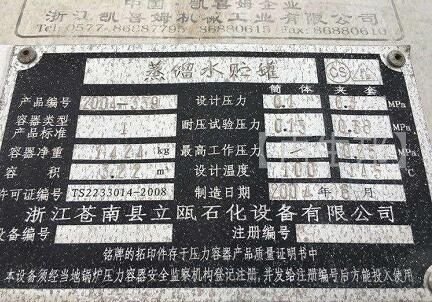 中国·凯喜姆企业
浙江凯喜姆机械工业有限公司
Tel:0577-86887795 86880615 Fax:86880610
蒸馏水贮罐
CS
筒体 夹套
产品编号 2004-339 设计压力 0.1 MPa
容器类型 1 耐压试验压力 0.13 0.38 MPa
产品标准
容器净重 kg 最高工作压力 MPa
容积 3.22 m³ 设计温度 100 ℃
许可证编号 TS2233014-2008 制造日期 年 月
浙江苍南县立瓯石化设备有限公司
设备编号 注册编号
铭牌的拓印件存于压力容器产品质量证明书中
本设备须经当地锅炉压力容器安全监察机构登记注册,并发给注册编号后方能投入使用